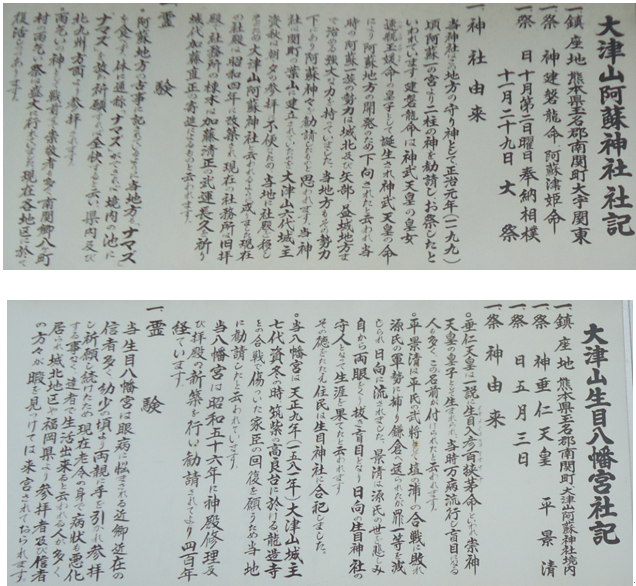 大津山阿蘇神社 社記
一、鎮座地 熊本県玉名郡南関町大字関東
一、祭神 建磐龍命 阿蘇津姫命
一、祭日 十月第二日曜日 奉納相撲
十一月二十九日 大祭
一、神社由来
当神社はこの地方の守り神として正治元年(一一九九)
頃阿蘇一の宮より二柱の神を勧請しお祭したと
いわれています 建磐龍命は神武天皇の皇女
の皇子として誕生され神武天皇の命
により阿蘇地方の開発のため下向されたと云われ当
時の阿蘇一族の勢力は城北及び矢部、益城地方ま
で治める強大な力を持っていました。当地方もその勢力
下にあり阿蘇神を勧請したものと思われます。当神
社は関町の葉山に建立されていたのが大津山六代城主
資秋は朝夕の参拝に不便なため当地に社殿を移し
大津山阿蘇神社と云われるようになりました現在
の社殿は昭和四年に改築され、現在の社務所は旧拝
殿で社務所の棟木は加藤清正の武運長久を祈り
城代加藤直正が寄進したものと云われています。
一、霊験
。阿蘇地方の古事記にもあるように当地方もナマズ
を食べず体に通称ナマズができたら境内の池に
ナマズを放し祈願すれば全快すると云い県内及び
北九州方面より参拝されます
。雨乞いの神としても戦前まで崇敬者も多く南関郷八ヶ町
村の雨乞い祭は盛大に行われました、現在各地区に於て
復活しつつあります。
大津山生目八幡宮社記
一、鎮座地 熊本県玉名郡南関町大津山阿蘇神社境内
一、祭神 垂仁天皇 平景清
一、祭日 五月三日
一、祭神由来
。垂仁天皇は一説に生目入彦五百狭茅命といわれ崇神
天皇の皇子として生まれました、当時万病流行し盲目になる
人も多く、この名前が付けられたと云われます
。平景清は平氏の武将で壇の浦の合戦に敗れ
源氏の軍勢に捕り鎌倉へ送られたが罪一等を減
じられ日向に流されました、景清は源氏の世を見るに
自から両眼をくり抜き盲目となり日向の生目神社の
守人となって生涯を果てたと云われます
その徳をたたえ住民は生目神社に合祀しました。
。当八幡宮は天正九年(一五八一年)大津山城主
七代資冬の時筑紫の高良台に於ける龍造寺
との合戦で傷ついた家正の回復を願うため当地
に勧請したと云われています。
当八幡宮は昭和五十六年に神殿修理及
び拝殿の新築を行い勧請されてより四百年
経ています。
一、霊験
当生目八幡宮は眼病に悩まされる近郷近在の
信者多く幼少の頃より両親に手を引かれ参拝
し祈願を続けたため現在老令の身で病状も悪化
する事なく達者で生活出来ると云われる人も多く
居られ城北地区や福岡県より参拝者及び信者
の方々が暇を見つけては来宮されております。